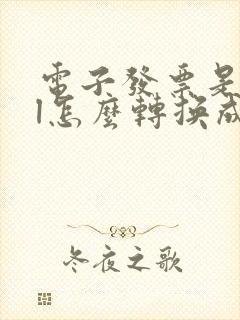 電子發票是
l怎麼轉換成
冬夜之歌